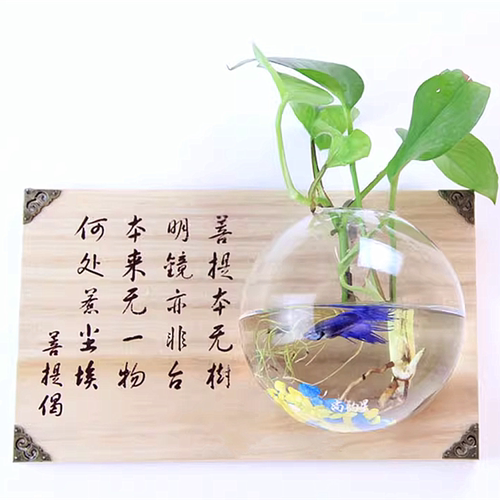 菩提本无樹
明鏡亦非台
本来无一物
何处惹尘埃
菩提偈